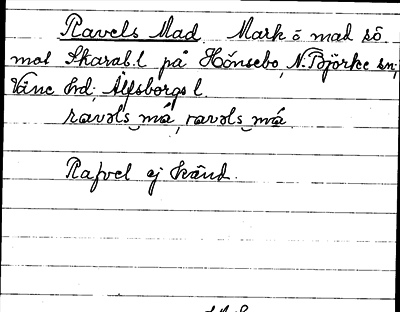 Ravels Mad Mark o mad sö
mot Skarab.l på Hönsebo, N. Björke sn,
Väne hd, Älfsborgs l.
ravəls_må, ravəls_må
Rafvel ej känd.